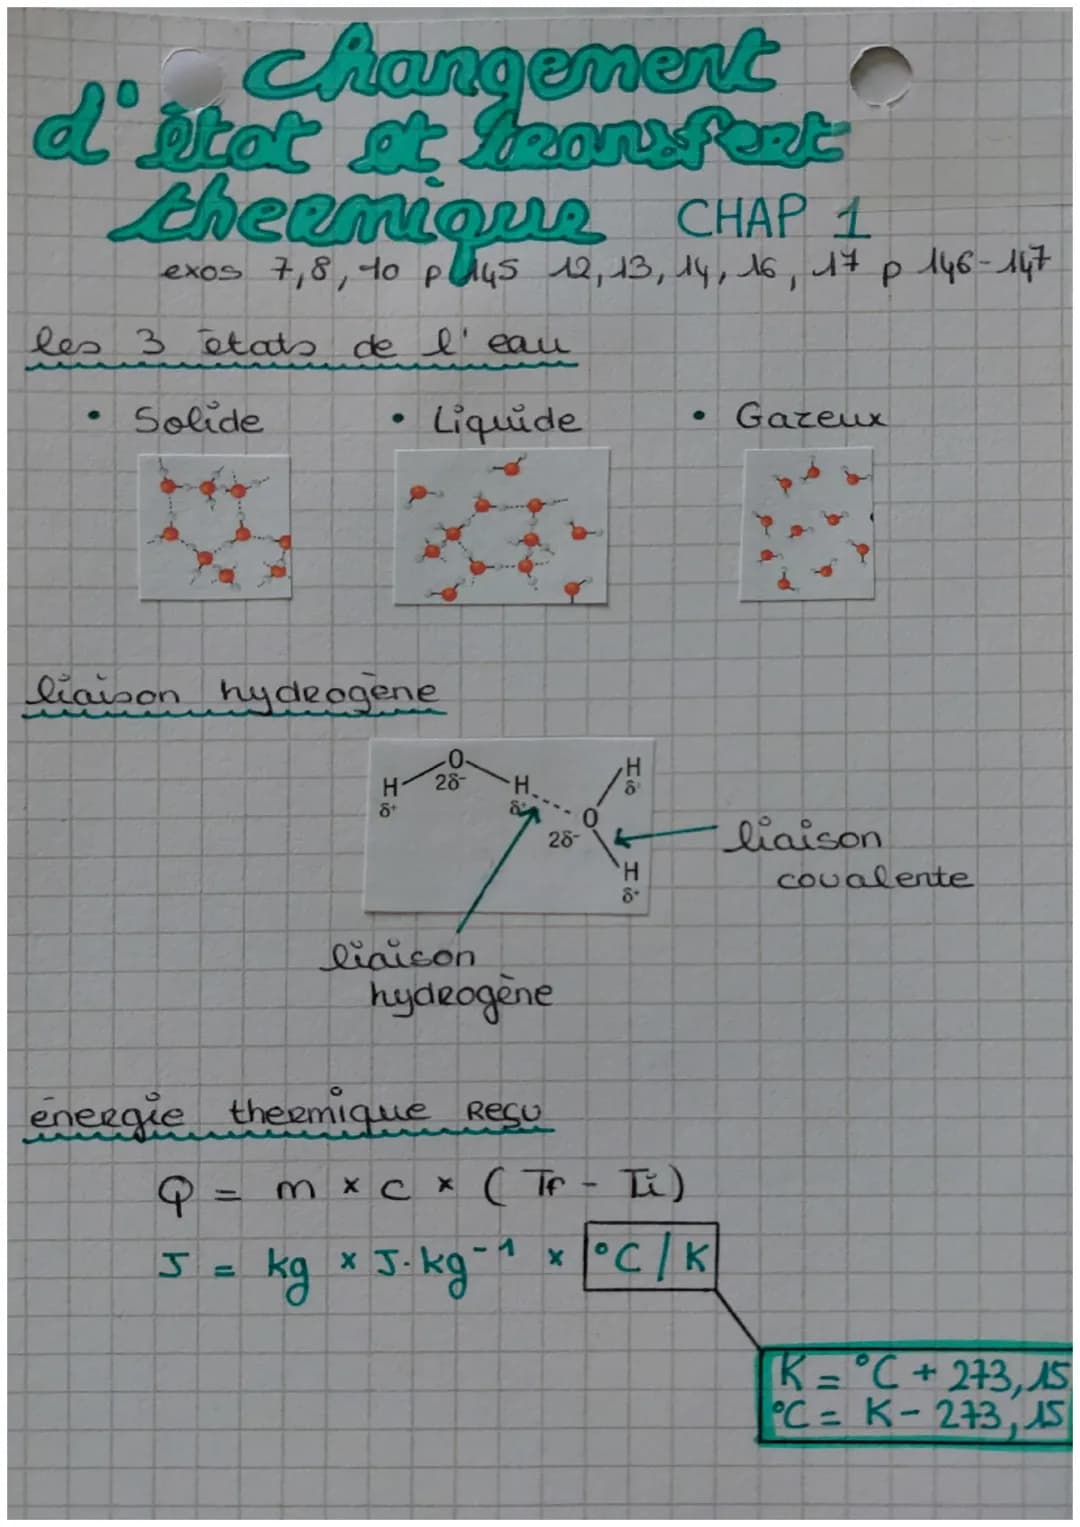 Changement
d'état et transfert
thermique CHAP 1
exos 7, 8, 10 p 145 12, 13, 14, 16, 17 p 146-147
les 3 états de l'eau
• Solide • Liquide • Gazeux
liaison hydrogène
H O H H
δ+ 2δ- δ+ δ+
O
2δ-
H
δ+
liaison
covalente
liaison
hydrogène
énergie thermique reçu
Q = m × c × ( Tf - Ti )
J = kg × J.kg⁻¹ × °C / K
K = °C + 273,15
°C = K - 273,15